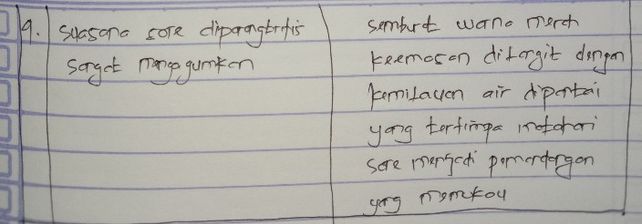 9. suasana sore diparangtritis
sangat mengagumkan
semburat warna merah
keemasan dilangit dengan
kemilauan air dipantai
yang tertimpa matahari
sore menjadi pemandangan
yang memukau